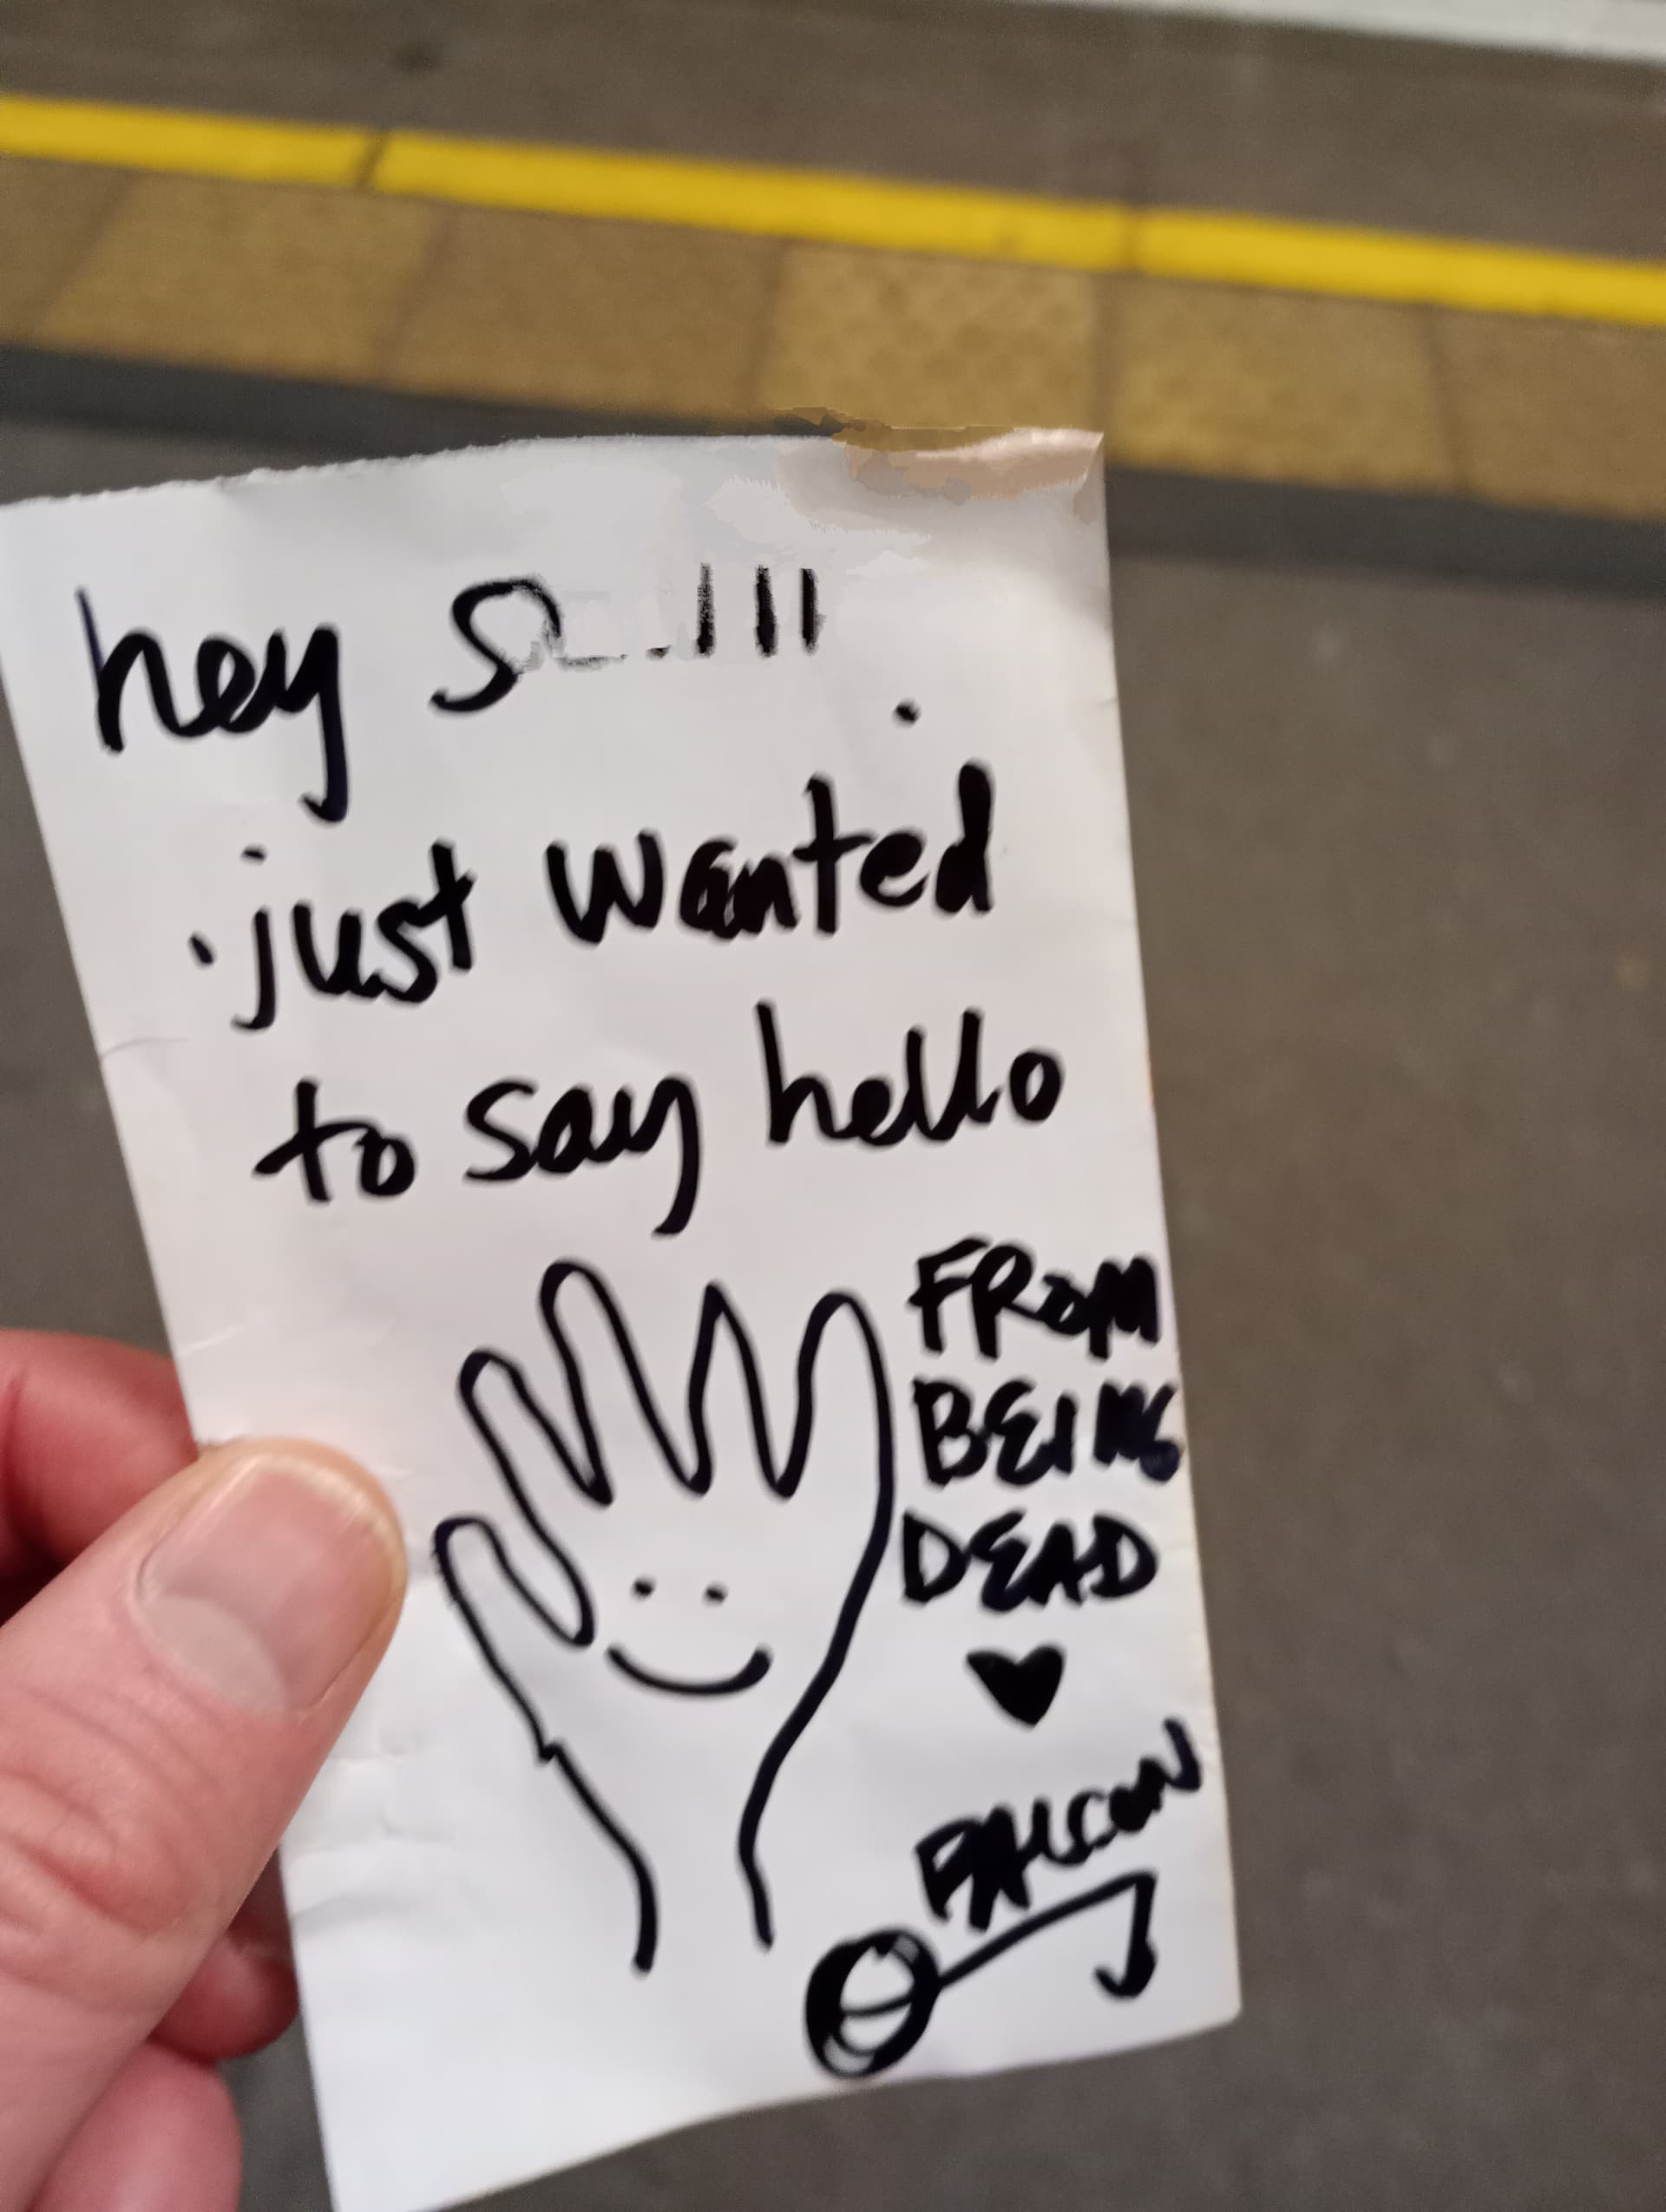 hey
just wanted
to say hello
FROM
BEING
DEAD
FALCON